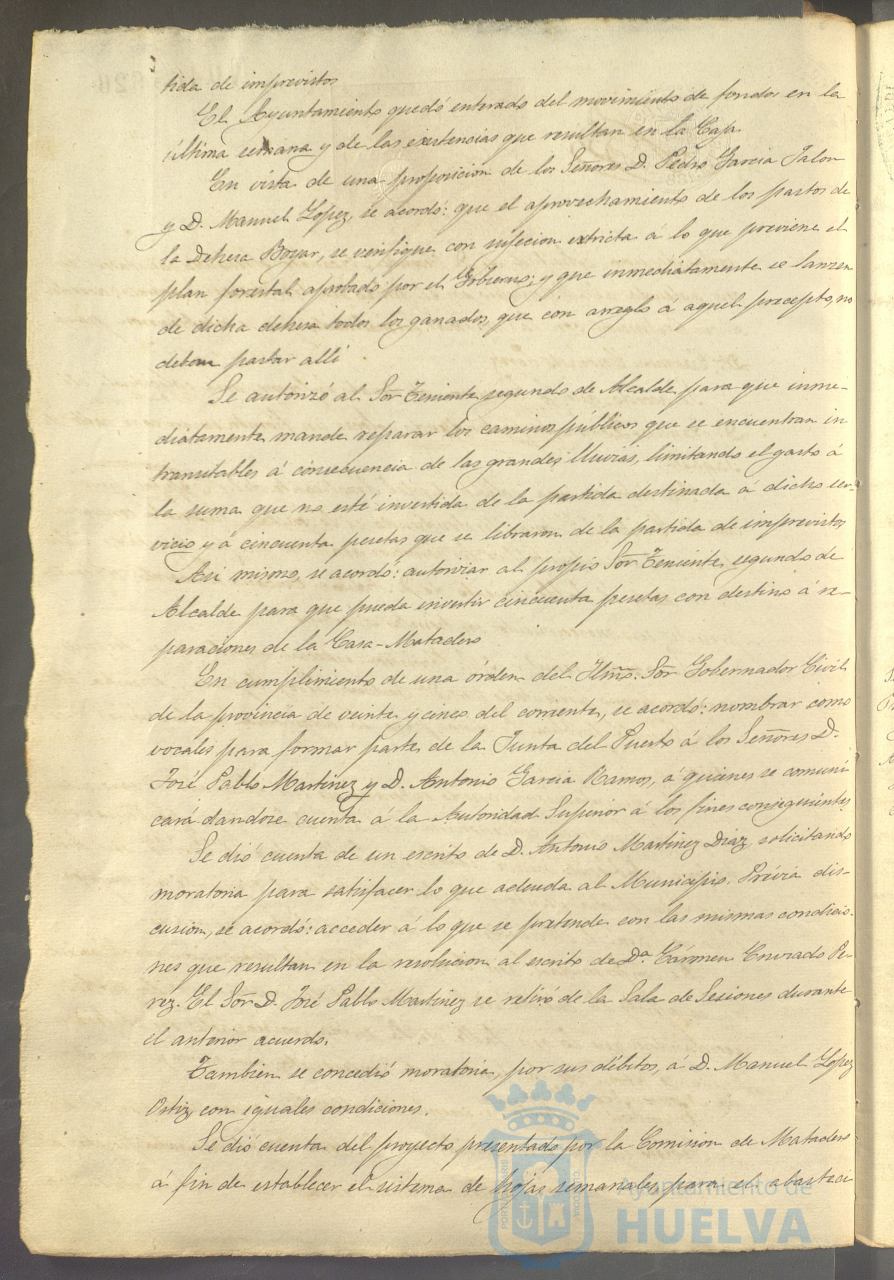 tida de imprevistos
El Ayuntamiento quedó enterado del movimiento de fondos en la
última semana y de las existencias que resultan en la Caja.
En vista de una proposicion de los Señores D. Pedro Garcia Jalon
y D. Manuel López, se acordó: que el aprovechamiento de los pastos de
la Dehesa Boyar, se verifique con sujecion extricta á lo que previene el
plan forestal aprobado por el Gobierno; y que inmediatamente se lanzen
de dicha dehesa todos los ganados, que con arreglo á aquel precepto, no
deban pastar allí.
Se autorizó al Sor Teniente segundo de Alcalde, para que inme-
diatamente, mande reparar los caminos públicos que se encuentran in
transitables á consecuencia de las grandes lluvias, limitando el gasto á
la suma que no esté invertida de la partida destinada á dicho ser-
vicio y á cincuenta pesetas que se libraron de la partida de imprevistos
Asi mismo, se acordó: autorizar al propio Sor Teniente segundo de
Alcalde para que pueda invertir cincuenta pesetas con destino á re-
paraciones de la Casa-Matadero
En cumplimiento de una órden del Iltmo. Sor Gobernador Civil
de la provincia de veinte y cinco del corriente, se acordó: nombrar como
vocales para formar parte, de la Junta del Puerto á los Señores D.
José Pablo Martinez y D. Antonio Garcia Ramos, á quienes se comuni
cará dandose cuenta á la Autoridad Superior á los fines consiguientes
Se dió cuenta de un escrito de D. Antonio Martinez Diaz, solicitando
moratoria para satisfacer lo que adeuda al Municipio. Prévia dis-
cusion, se acordó: acceder á lo que se pretende con las mismas condicio-
nes que resultan en la resolucion al escrito de Da. Cármen Pe-
rez. El Sor D. José Pablo Martinez se retiró de la Sala de Sesiones durante
el anterior acuerdo.
Tambien se concedió moratoria, por sus débitos, á D. Manuel López
Ortiz, con iguales condiciones.
Se dió cuenta del proyecto presentado por la Comision de Matadero
á fin de establecer el sistema de hojas semanales, para el abasteci
Ayuntamiento de
HUELVA